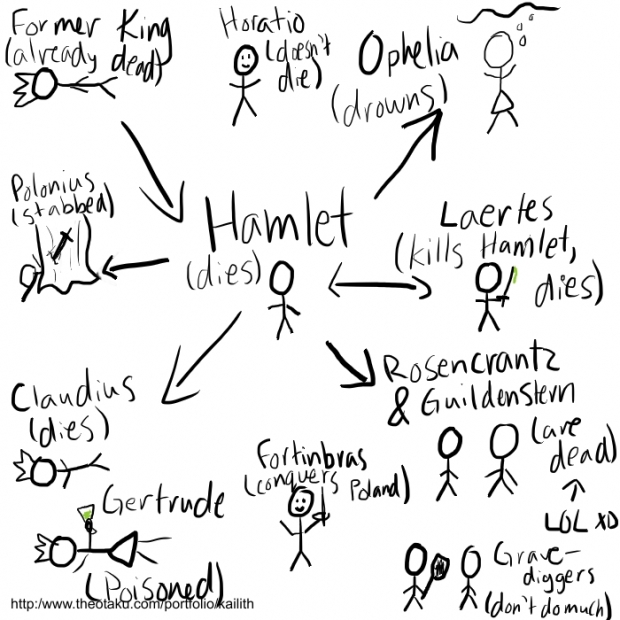 Former King
(already dead)
Horatio
(doesn't
die)
Ophelia
(drowns)
Polonius
(stabbed)
Hamlet
(dies)
Laertes
(kills Hamlet,
dies)
Rosencrantz
& Guildenstern
(are
dead)
LOL XD
Claudius
(dies)
Gertrude
(Poisoned)
Fortinbras
(conquers Poland)
Grave-
diggers
(don't do much)
http://www.theotaku.com/portfolio/kailith